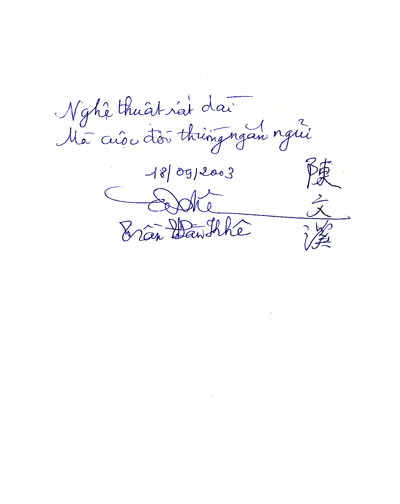 Nghệ thuật rất dài
Mà cuộc đời thường ngắn ngủi
18/09/2003
Trần Văn Khê
陳
文
溪